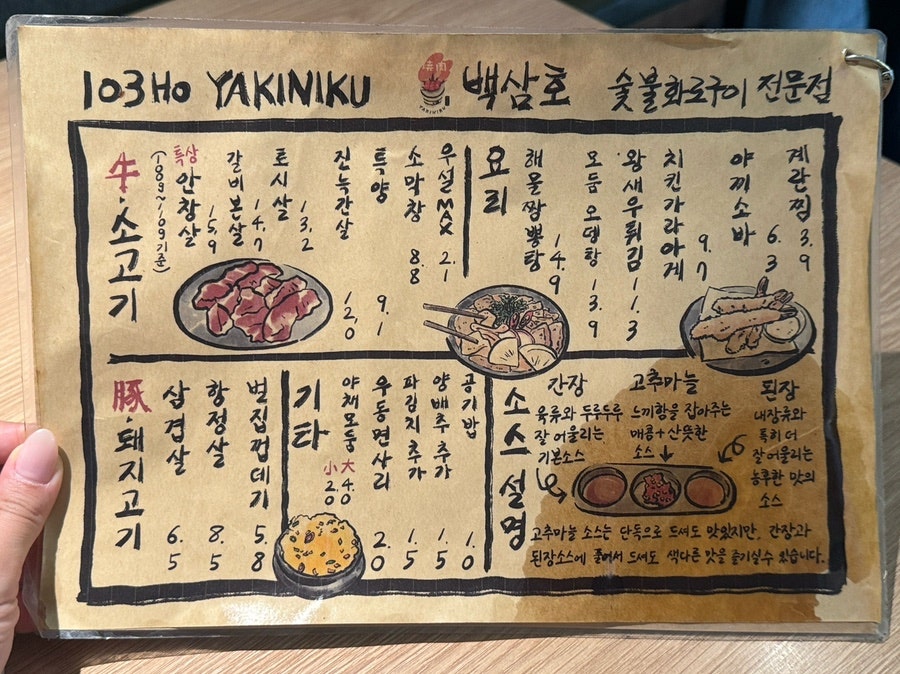 103Ho YAKINIKU
燒肉
YAKINIKU
백삼호
숯불화로구이 전문점
牛·소고기
(100g~110g기준)
특상 안창살 15.9
갈비본살 14.7
토시살 13.2
진녹간살 12.0
특양 9.1
소막창 8.8
우설MAX 2.1
요리
해물짬뽕탕 14.9
모듬오뎅탕 13.9
왕새우튀김 11.3
치킨가라아게 9.7
야끼소바 6.3
계란찜 3.9
豚·돼지고기
삼겹살 6.5
항정살 8.5
벌집껍데기 5.8
기타
야채모듬 小 2.0 大 4.0
우동면사리 2.0
파김치추가 1.5
양배추추가 1.5
공기밥 1.0
소스설명
간장
육류와 두루두루
잘 어울리는
기본소스
고추마늘
느끼함을 잡아주는
매콤+산뜻한
소스
된장
내장류와
특히 더
잘 어울리는
농후한 맛의
소스
고추마늘 소스는 단독으로 드셔도 맛있지만, 간장과
된장소스에 풀어서 드셔도 색다른 맛을 즐기실수 있습니다.